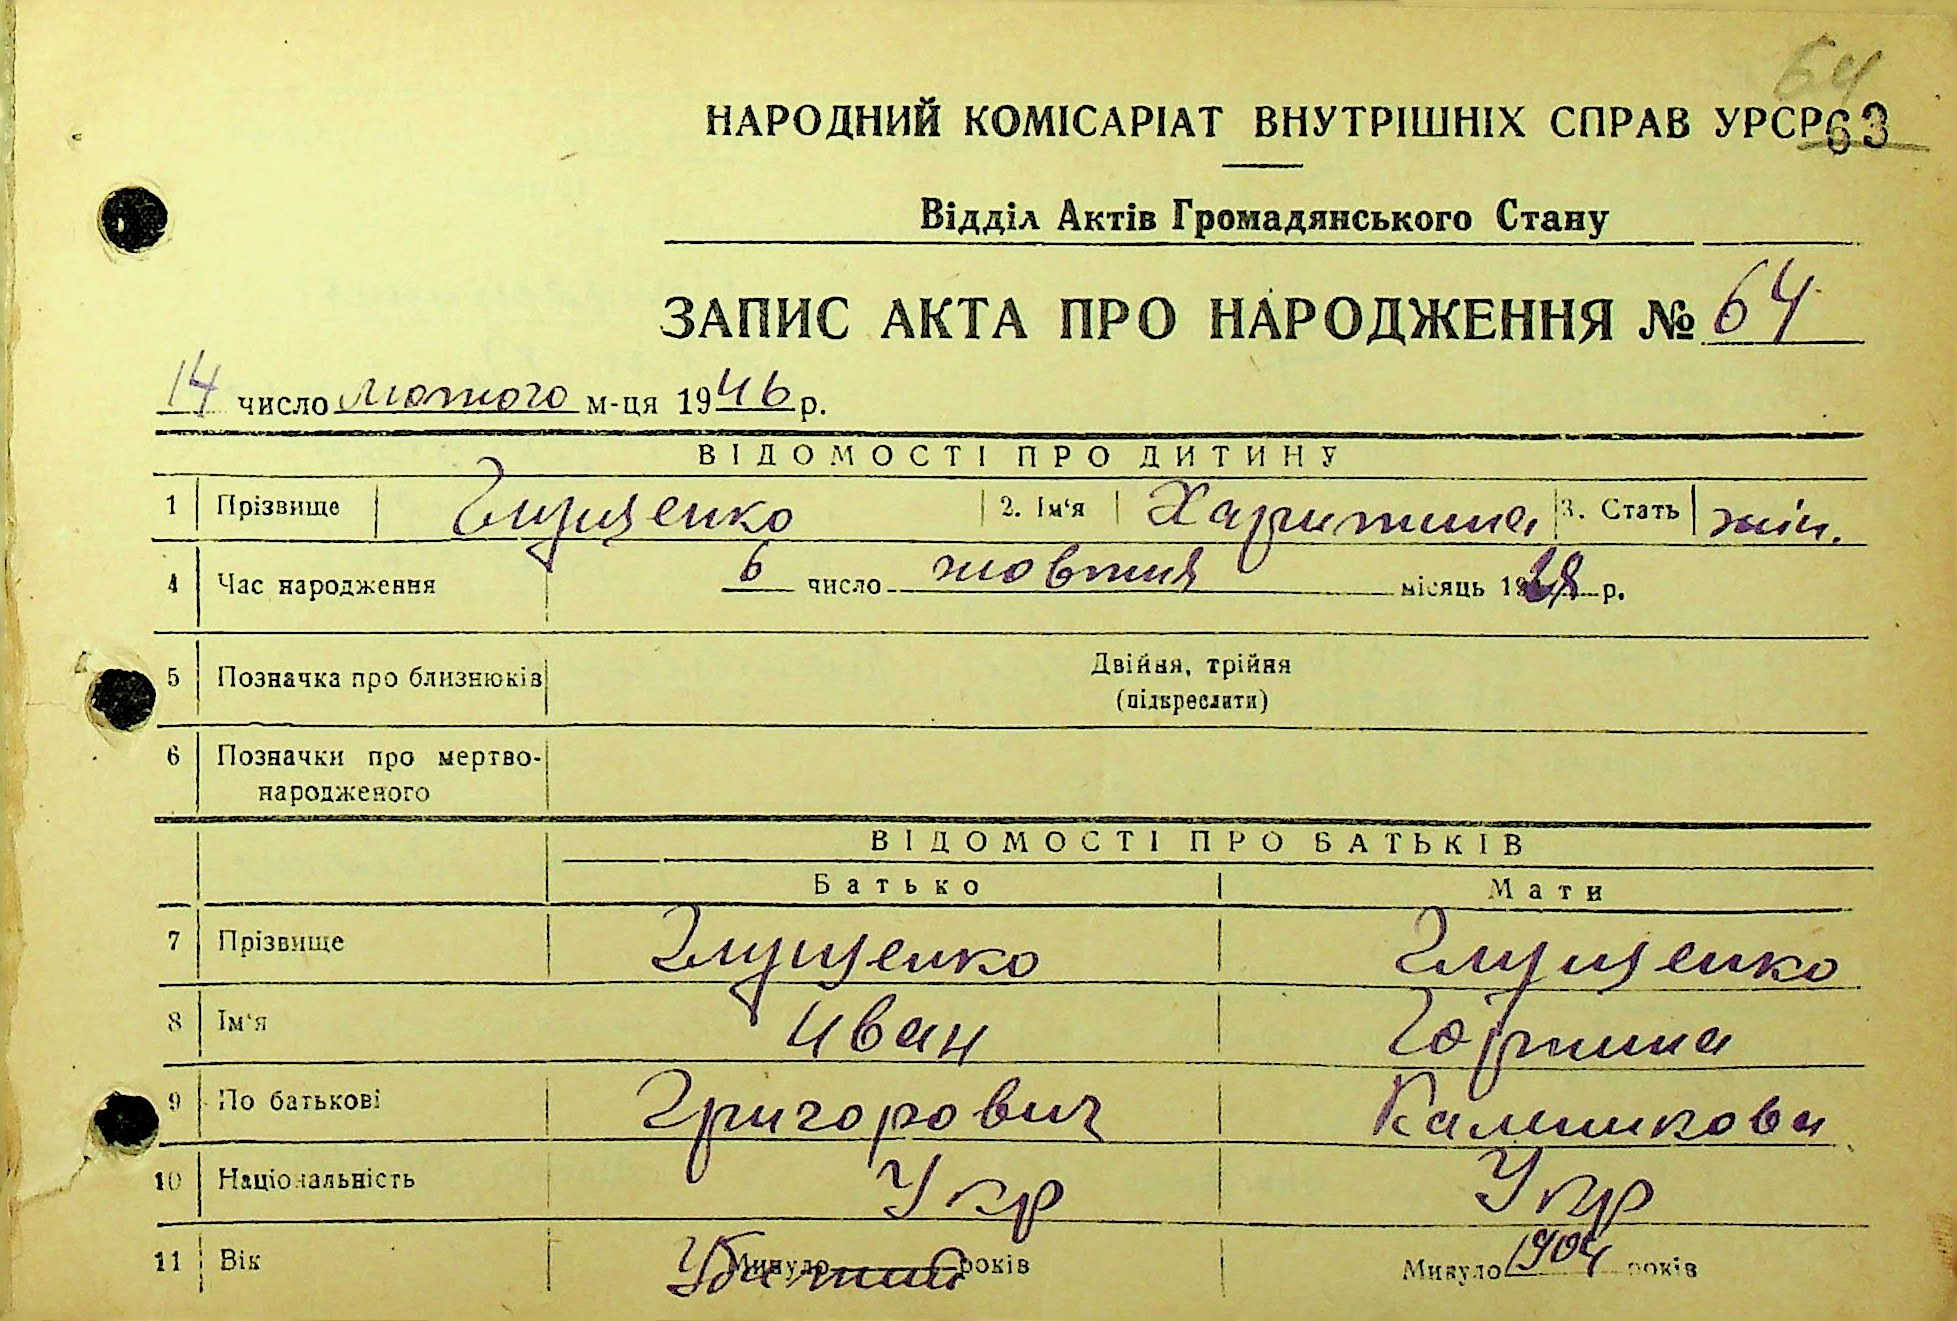 64
НАРОДНИЙ КОМІСАРІАТ ВНУТРІШНІХ СПРАВ УРСР 63
Відділ Актів Громадянського Стану
ЗАПИС АКТА ПРО НАРОДЖЕННЯ № 64
14 число лютого м-ця 1946 р.
ВІДОМОСТІ ПРО ДИТИНУ
1 Прізвище Глущенко 2. Ім'я Харитина 3. Стать жін.
4 Час народження 6 число жовтня місяць 1928 р.
5 Позначка про близнюків Двійня, трійня
(підкреслити)
6 Позначки про мертво-
народженого
ВІДОМОСТІ ПРО БАТЬКІВ
Батько Мати
7 Прізвище Глущенко Глущенко
8 Ім'я Иван Горпина
9 По батькові Григорович
10 Національність Укр Укр
11 Вік Убитий Минуло років Минуло 1904 років